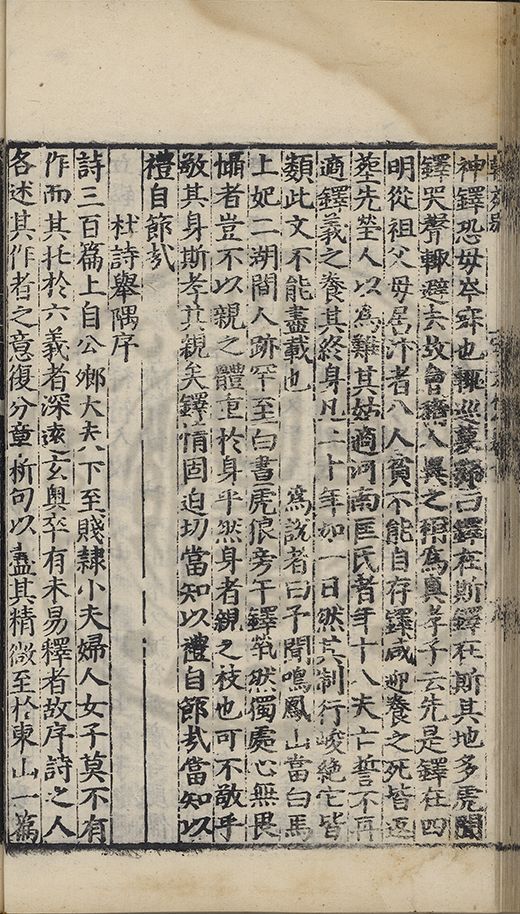 神鐸恐母卒寐也輒巡墓號曰鐸在斯鐸在斯其地多虎聞
鐸哭聲輒避去故會稽人異之稱為真孝子云先是鐸在四
明從祖父母居汴者八人貧不能自存鐸咸迎養之死皆返
塟先塋人以為難其姑適河南匡氏者年十八夫亡誓不再
適鐸義之養其終身凡二十年如一日然其制行峻絕它皆
類此文不能盡載也 為說者曰予聞鳴鳳山當白馬
上妃二湖間人跡罕至白晝虎狼旁午鐸煢然獨處心無畏
懾者豈不以親之體重於身乎然身者親之枝也可不敬乎
敬其身斯孝其親矣鐸情固迫切當知以禮自節哉當知以
禮自節哉
杜詩舉隅序
詩三百篇上自公卿大夫下至賤隸小夫婦人女子莫不有
作而其托於六義者深遠玄奧卒有未易釋者故序詩之人
各述其作者之意復分章析句以盡其精微至於東山一篇